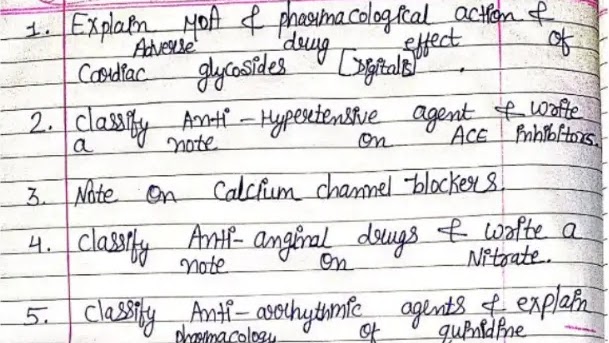 1. Explain MOA & pharmacological action &
Adverse drug effect of
Cardiac glycosides [Digitalis] .
2. classify Anti-Hypertensive agent & write
a note on ACE inhibitors.
3. Note on Calcium channel blockers.
4. classify Anti-anginal drugs & write a
note on Nitrate.
5. classify Anti-arrhythmic agents & explain
pharmacology of quinidine